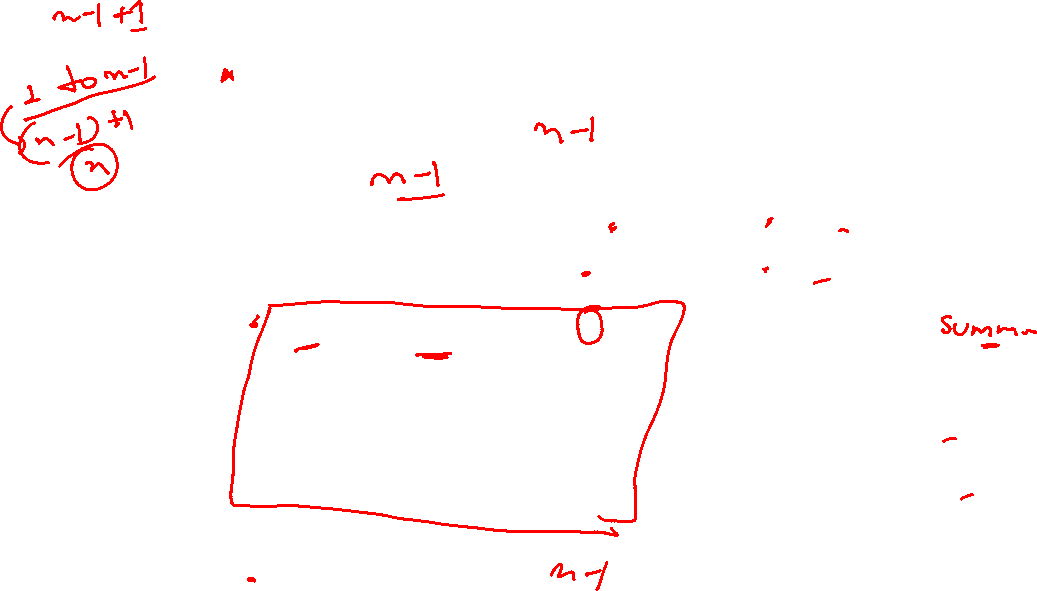 n-1+1
1 to n-1
(n-1)+1
n
n-1
n-1
0
summn
n-1